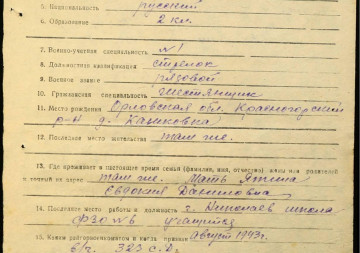 5. Национальность русский
6. Образование 2 кл.
7. Военно-учетная специальность №1
8. Должностная квалификация стрелок
9. Военное звание рядовой
10. Гражданская специальность
11. Место рождения Орловская обл. Красногорский
р-н д.
12. Последнее место жительства там же.
13. Где проживает в настоящее время семья (фамилия, имя, отчество) жены или родителей
и точный их адрес там же. Мать
Евдокия Даниловна
14. Последнее место работы и должность г. Николаев школа
ФЗО №6
15. Каким райвоенкоматом и когда призван август 1943 г.
в/ч. 323 с.д.